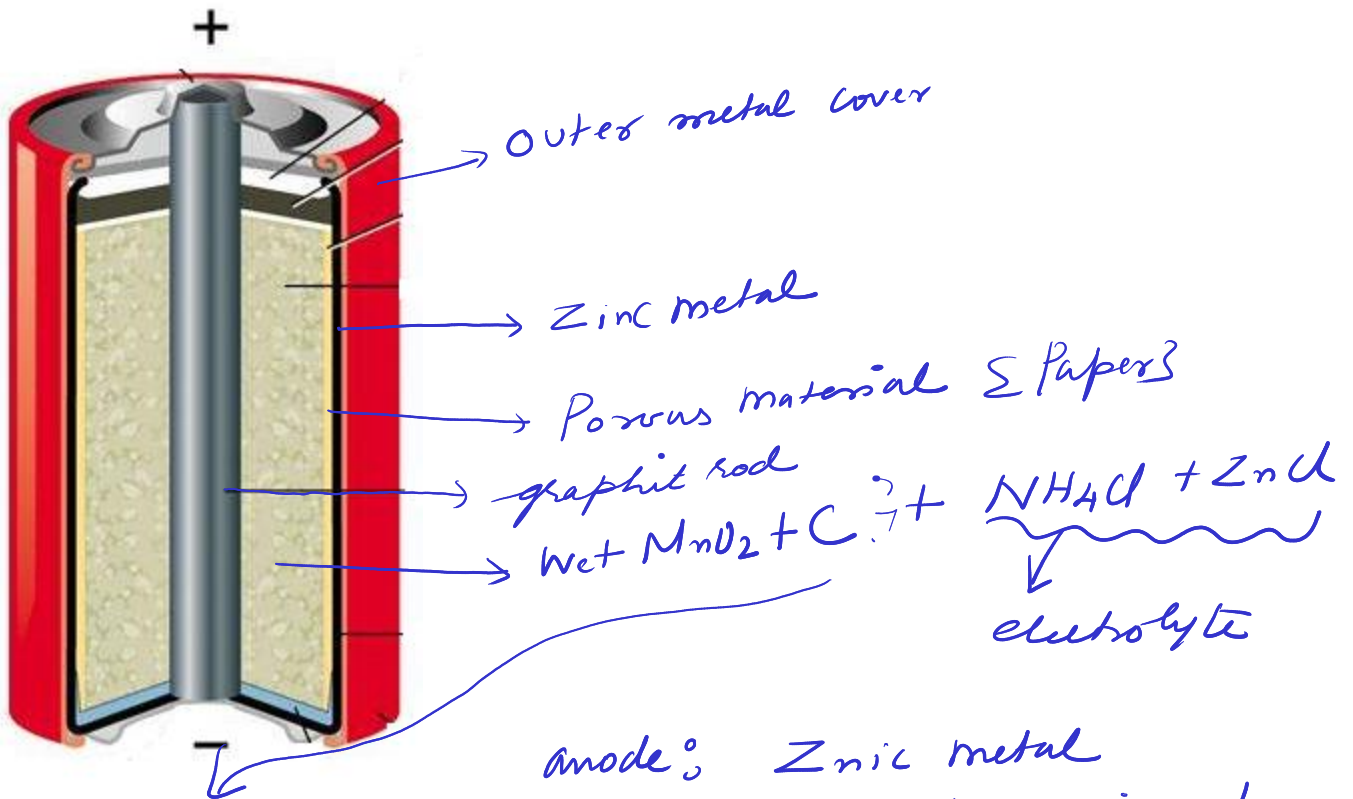 +
Outer metal cover
Zinc metal
Porous material { Paper }
graphit rod
Wet MnO2 + C ; + NH4Cl + ZnCl
electrolyte
−
anode: Znic metal